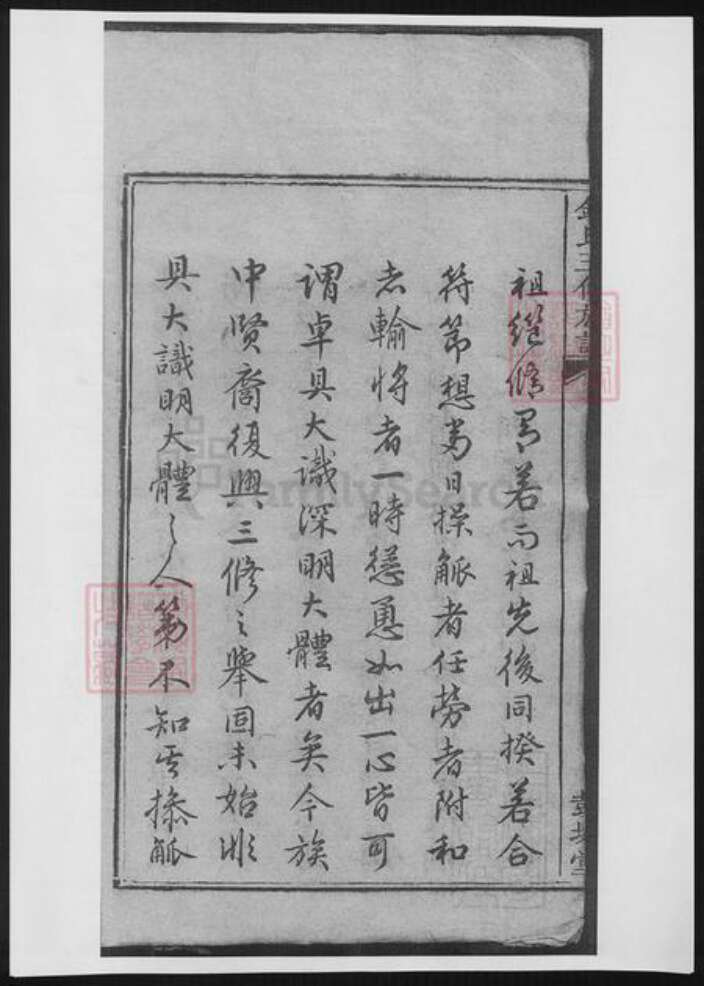 祖繼修罔若而祖先後同揆若合
符節想當日操觚者任勞者附和
者輸將者一時慫恿如出一心皆可
謂卓具大識深明大體者矣今族
中賢裔復興三修之舉固未始非
具大識明大體之人第不知其操觚
三修族譜
FamilySearch